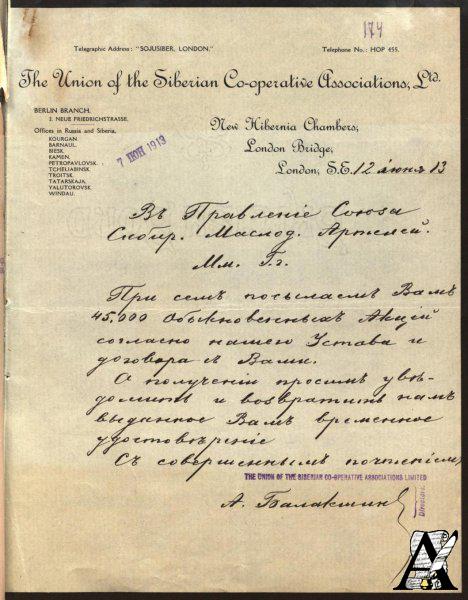 174
Telegraphic Address: "SOJUSIBER, LONDON."
Telephone No.: HOP 455.
The Union of the Siberian Co-operative Associations, Ltd.
BERLIN BRANCH,
2, NEUE FRIEDRICHSTRASSE.
Offices in Russia and Siberia,
KOURGAN.
BARNAUL.
BIESK.
KAMEN.
PETROPAVLOVSK.
TCHELIABINSK.
TROITSK.
TATARSKAJA.
YALUTOROVSK.
WINDAU.
7 ІЮН 1913
New Hibernia Chambers,
London Bridge,
London, S.E. 12 іюня 13
Въ Правленіе Союза
Сибир. Маслод. Артелей.
Мм. Гг.
При семъ посылаемъ Вамъ
45,000 Обыкновенныхъ Акцій
согласно нашего Устава и
договора съ Вами.
О полученіи просимъ увѣ-
домить и возвратить намъ
выданное Вамъ временное
удостовѣреніе
Съ совершеннымъ почтеніемъ,
THE UNION OF THE SIBERIAN CO-OPERATIVE ASSOCIATIONS LIMITED
А. Балакшинъ
Directors.
A